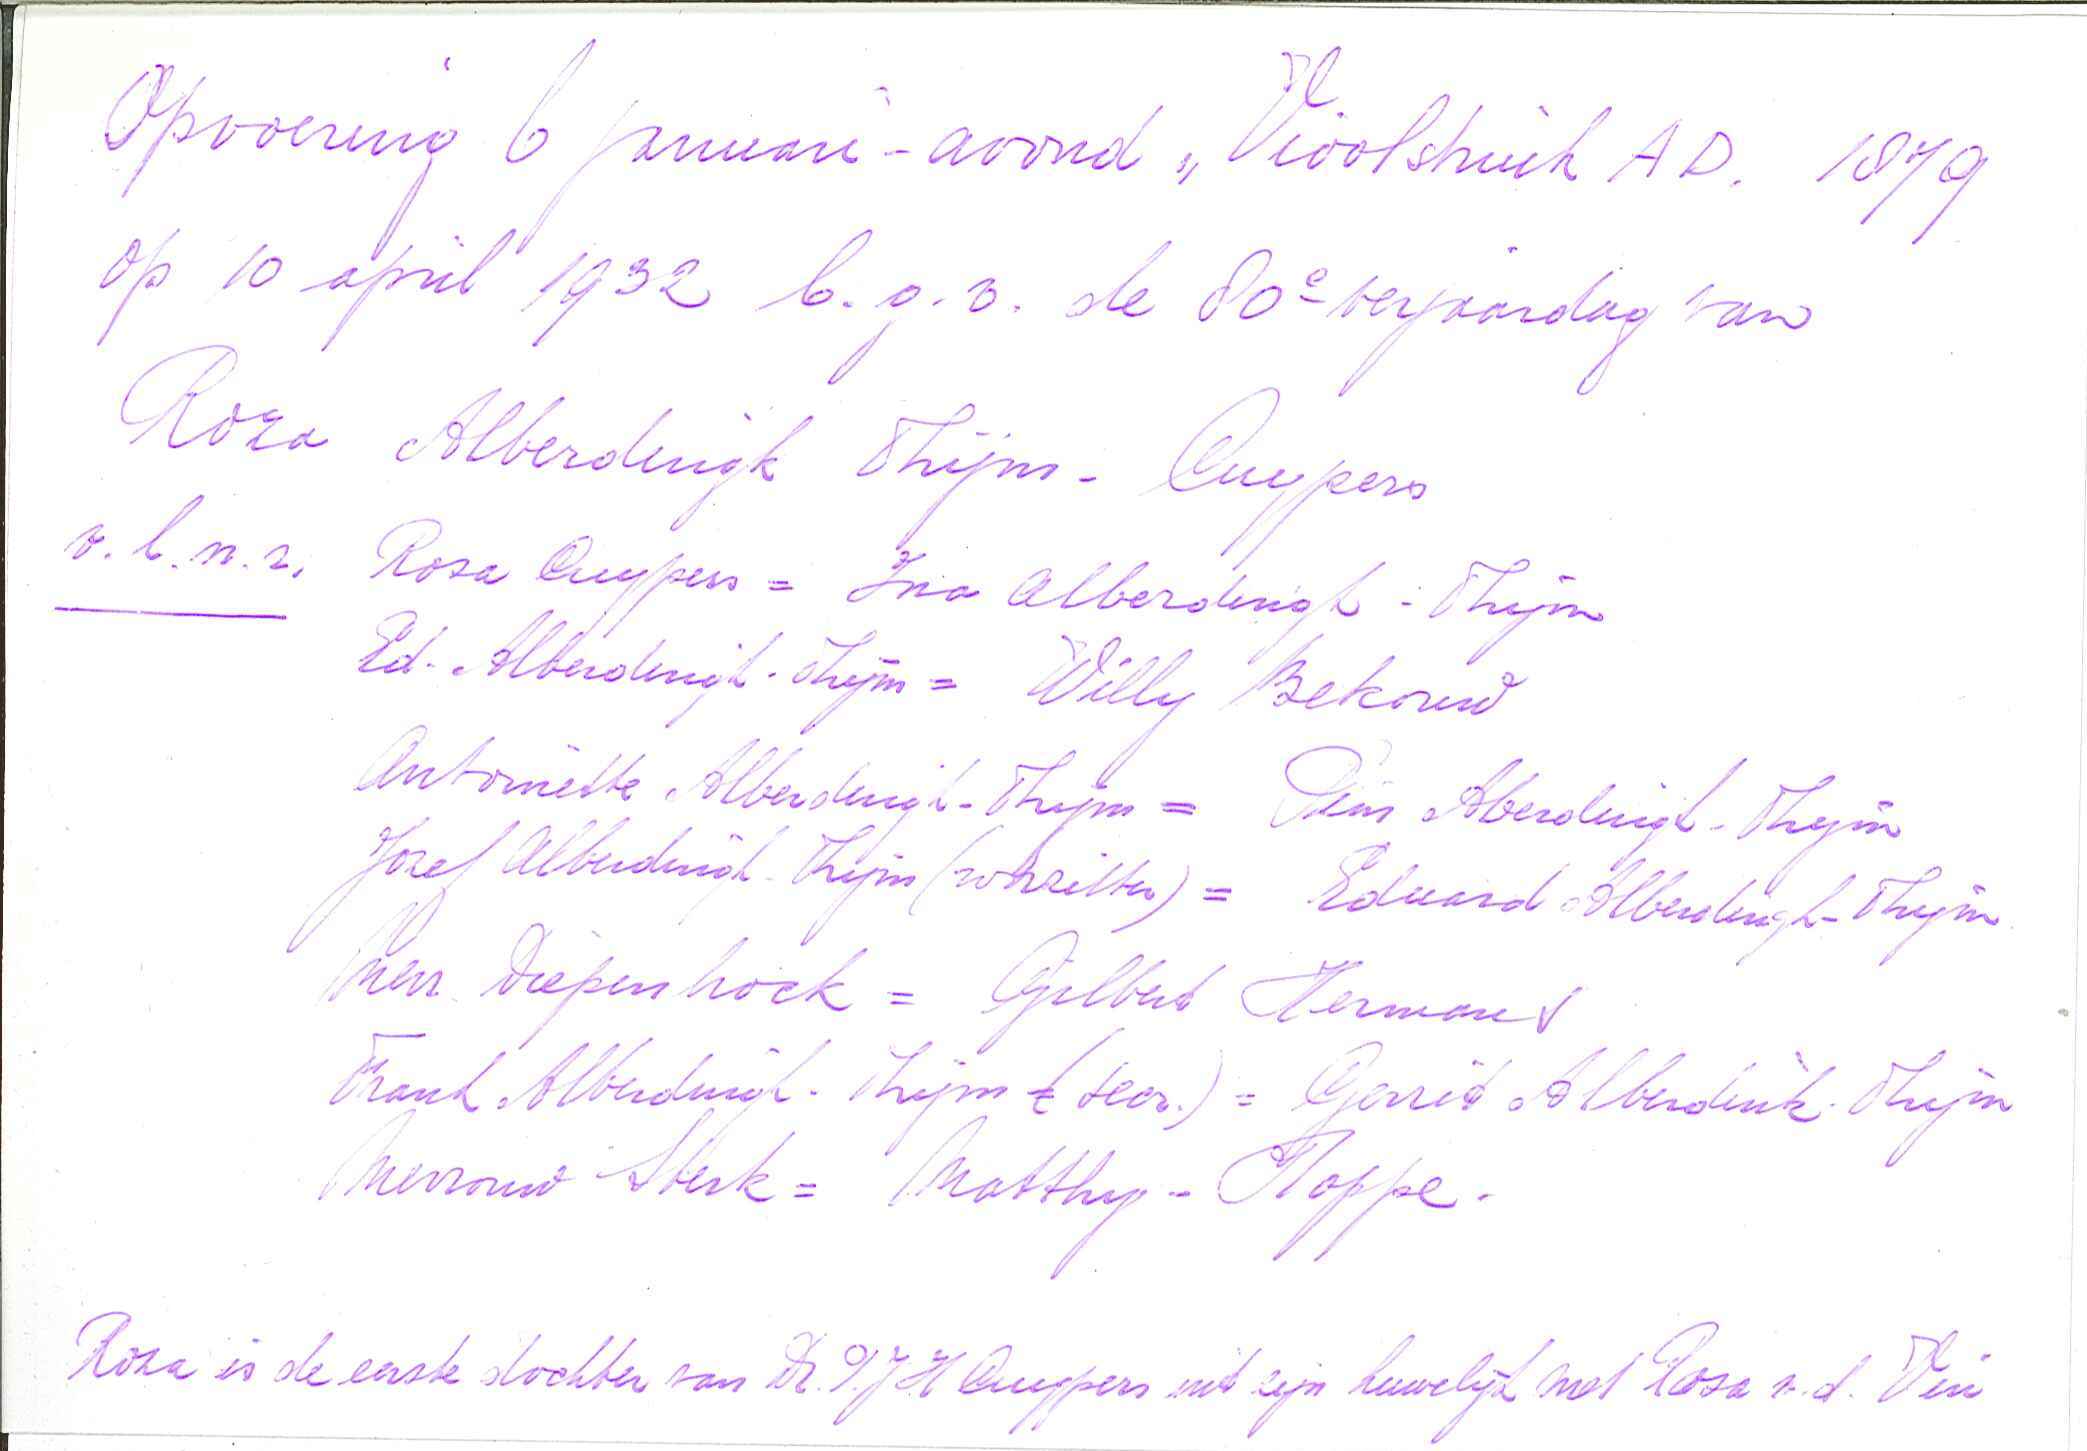 Opvoering 6 januari-avond „Vioolstruik A D. 1879
op 10 april 1932 b.g.v. de 80e verjaardag van
Roza Alberdingk Thijm - Cuypers
v.l.n.r. Rosa Cuypers = Ina Alberdingk - Thijm
Ed. Alberdingk - Thijm = Willy Bekouw
Antoinette Alberdingk - Thijm = Pim Aberdingk - Thijm
Jozef Alberdingk - Thijm ( ) = Eduard Alberdingk - Thijm
Mevr. Diepenhock = Gilbert Hermans
Frank Alberdingk - Thijm (secr.) = Gerrit Alberdink - Thijm
Mevrouw Sterk = Matthy - Hoppe.
Roza is de eerste dochter van Dr. P.J.H Cuypers uit zijn huwelijk met Rosa v.d. Vin